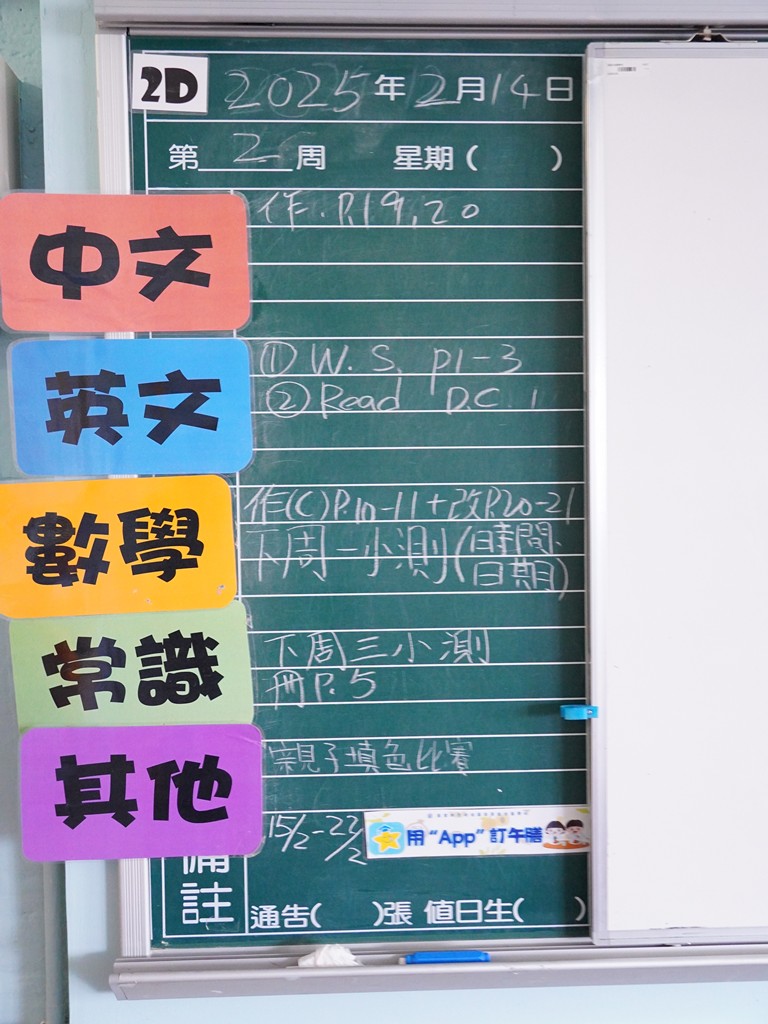 2D 2025年2月14日
第2周 星期( )
中文
作.P.19,20
英文
① W.S. p1-3
② Read D.C.1
數學
作(C)P.10-11+改P.20-21
下周一小測(時間、
日期)
常識
下周三小測
冊P.5
其他
親子填色比賽
15/2-23/2
用“App”訂午膳
備註
通告( )張 值日生( )